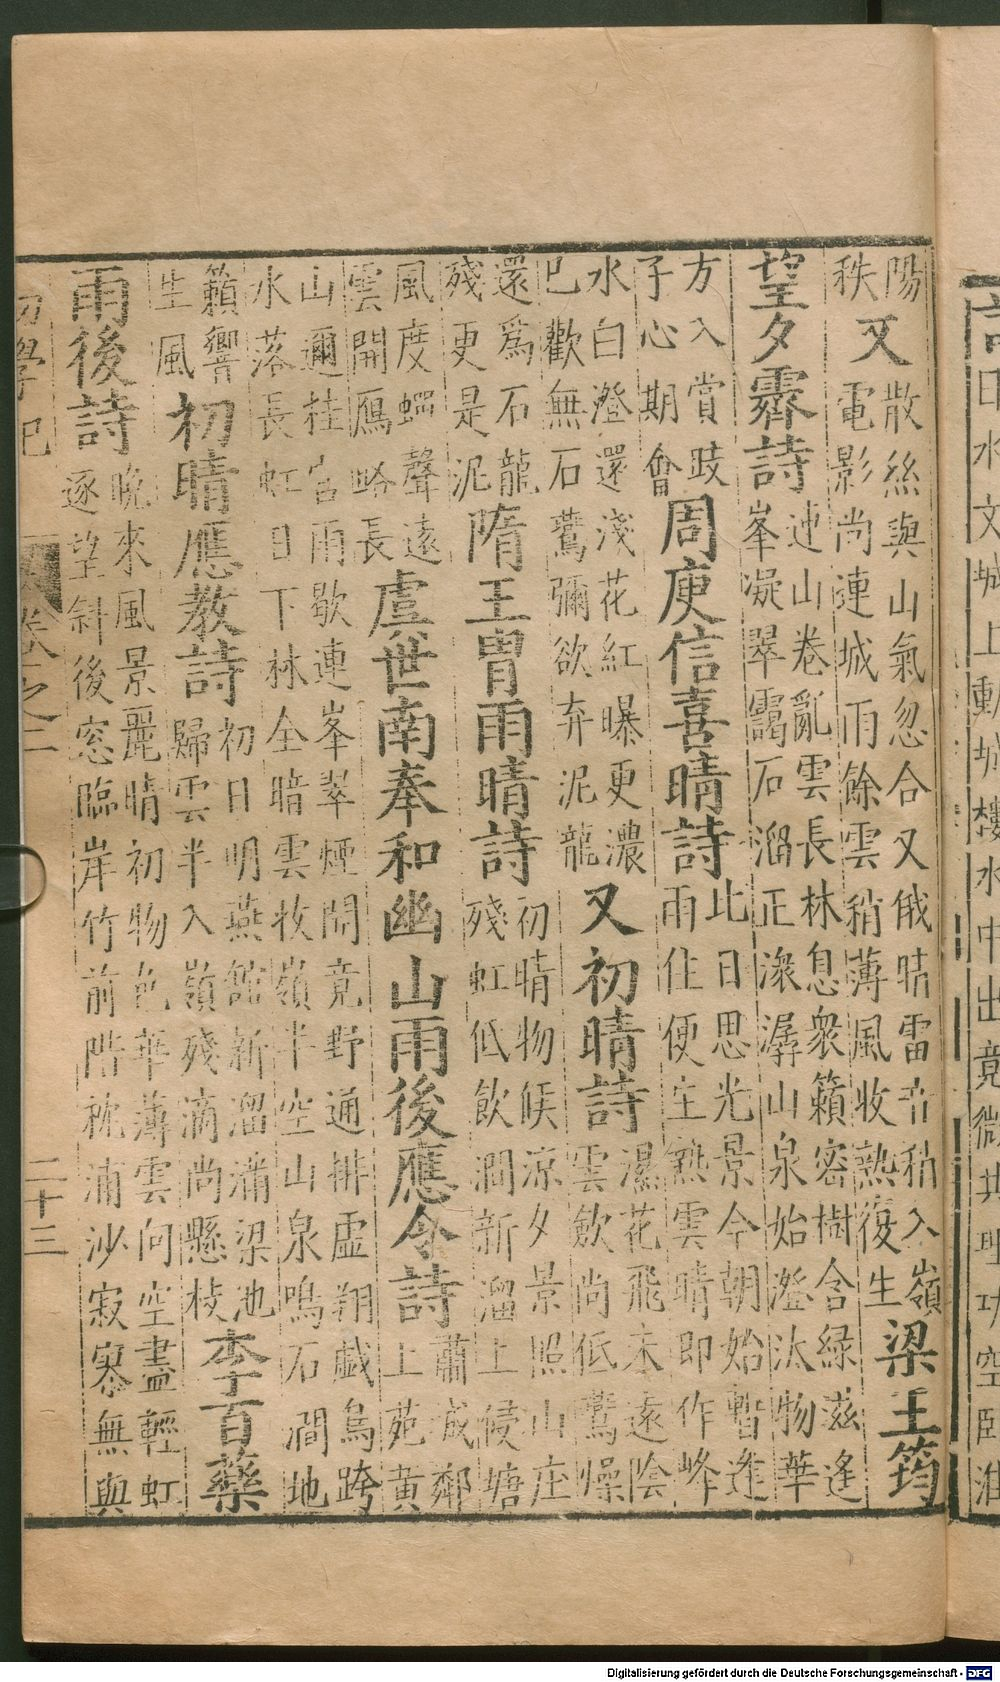 言曰水文城上動城樓水中出竟微共理功空臥淮
陽秩又散絲與山氣忽合又俄晴雷音稍入嶺電影尚連城雨餘雲稍薄風收熱復生梁王筠
望夕霽詩連山卷亂雲長林息衆籟密樹含緑滋逢峯凝翠靄石溜正滾潺山泉始澄汰物華
方入賞跂子心期會周庾信喜晴詩此日思光景今朝始暫逢雨住便生熱雲晴即作峰
水白澄還淺花紅曝更濃已歡無石鷰彌欲弃泥龍又初晴詩濕花飛未遠陰雲歛尚低鷰燥
還爲石龍殘更是泥隋王胄雨晴詩初晴物候涼夕景照山庄殘虹低飲澗新溜上侵塘
風度蟬聲遠雲開鴈路長虞世南奉和幽山雨後應令詩肅成鄰上苑黃
山邇桂宮雨歇連峯翠煙開竟野通排虛翔戲鳥跨水落長虹日下林全暗雲收嶺半空山泉鳴石澗地
籟響生風初晴應教詩初日明燕館新溜滿梁池歸雲半入嶺殘滴尚懸枝李百藥
雨後詩晚來風景麗晴初物色華薄雲向空盡輕虹逐望斜後窓臨岸竹前階枕浦沙寂寥無與
初學記 卷之二 二十三
Digitalisierung gefördert durch die Deutsche Forschungsgemeinschaft - DFG